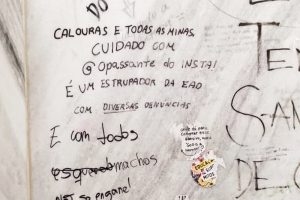 DO
CALOURAS E TODAS AS MINAS,
CUIDADO COM
@OPASSANTE DO INSTA!
É UM ESTRUPADOR DA EAD
COM DIVERSAS DENÚNCIAS
E com todos
esquerdomachos
NÃO SE ENGANE!
E
TE
SAN
DE C